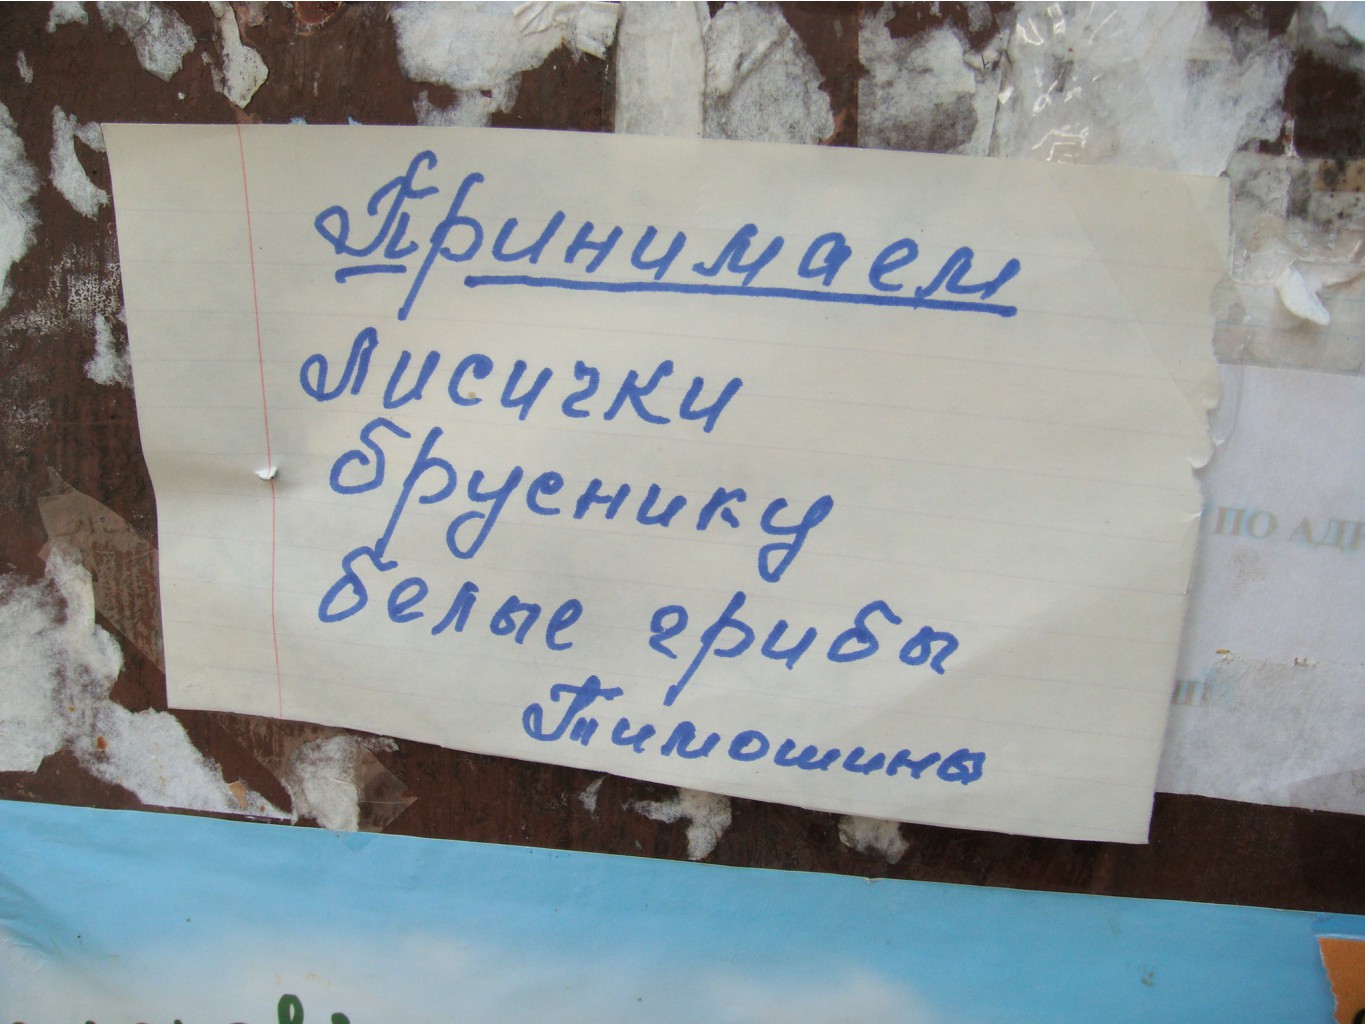 Принимаем
Лисички
бруснику
белые грибы
Тимошины
ПО АД